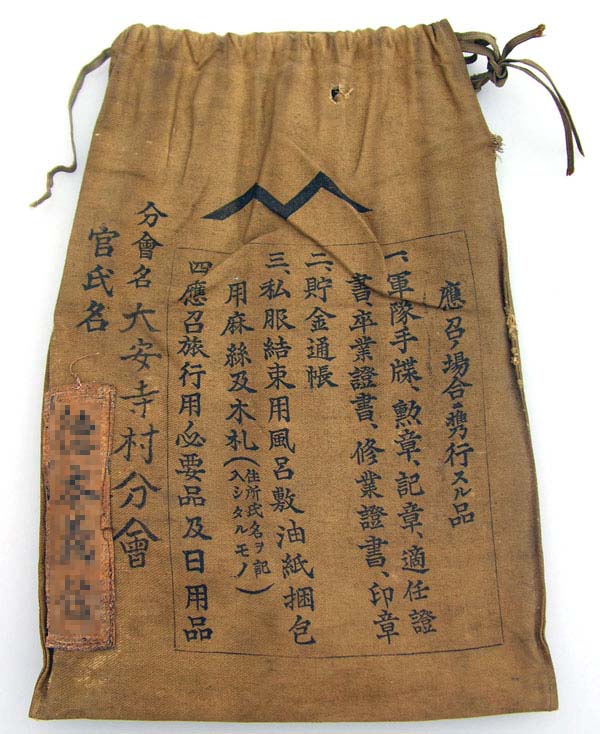 應召ノ場合ニ携行スル品
一、軍隊手牒、勲章、記章、適任證
書、卒業證書、修業證書、印章
二、貯金通帳
三、私服結束用風呂敷油紙梱包
用麻絲及木札(住所氏名ヲ記
入シタルモノ)
四應召旅行用必要品及日用品
分會名 大安寺村分會
官氏名